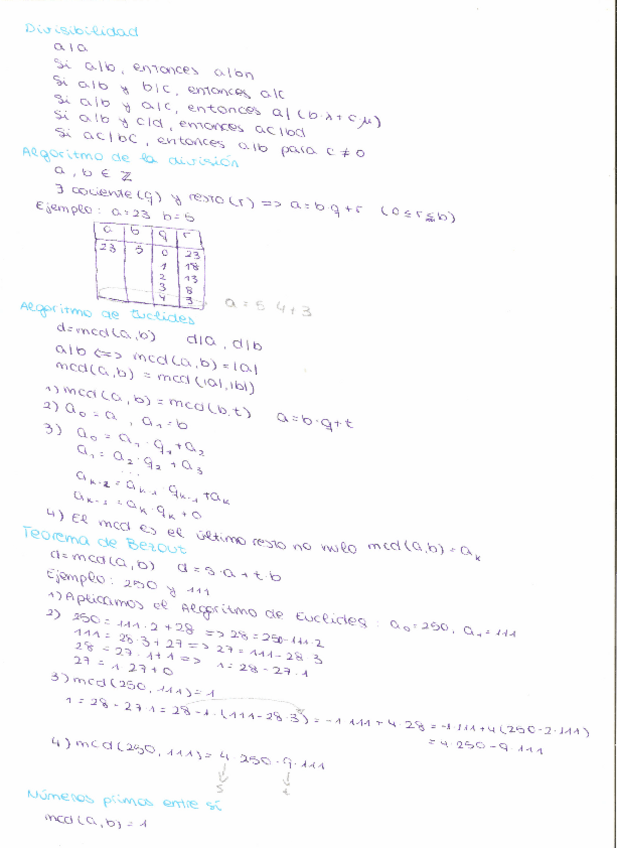 Divisibilidad
a|a
Si a|b, entonces a|bn
Si a|b y b|c, entonces a|c
Si a|b y a|c, entonces a|(b·λ+c·μ)
Si a|b y c|d, entonces ac|bd
Si ac|bc, entonces a|b para c≠0
Algoritmo de la división
a, b ∈ ℤ
∃ cociente(q) y resto(r) => a=b·q+r (0≤r≤b)
Ejemplo: a=23 b=5
a b q r
23 5 0 23
1 18
2 13
3 8
4 3 a = 5·4+3
Algoritmo de Euclides
d=mcd(a,b) d|a, d|b
a|b <=> mcd(a,b)=|a|
mcd(a,b) = mcd(|a|,|b|)
1) mcd(a,b)=mcd(b,t) a=b·q+t
2) a₀=a, a₁=b
3) a₀=a₁·q₁+a₂
a₁=a₂·q₂+a₃
...
aₖ₋₂=aₖ₋₁·qₖ₋₁+aₖ
aₖ₋₁=aₖ·qₖ+0
4) El mcd es el último resto no nulo mcd(a,b)=aₖ
Teorema de Bezout
d=mcd(a,b) d=s·a+t·b
Ejemplo: 250 y 111
1) Aplicamos el Algoritmo de Euclides: a₀=250, a₁=111
2) 250=111·2+28 => 28=250-111·2
111=28·3+27 => 27=111-28·3
28=27·1+1 => 1=28-27·1
27=1·27+0
3) mcd(250,111)=1
1=28-27·1=28-1·(111-28·3)=-1·111+4·28=-1·111+4(250-2·111)
=4·250-9·111
4) mcd(250,111)=4·250-9·111
s t
Números primos entre sí
mcd(a,b)=1